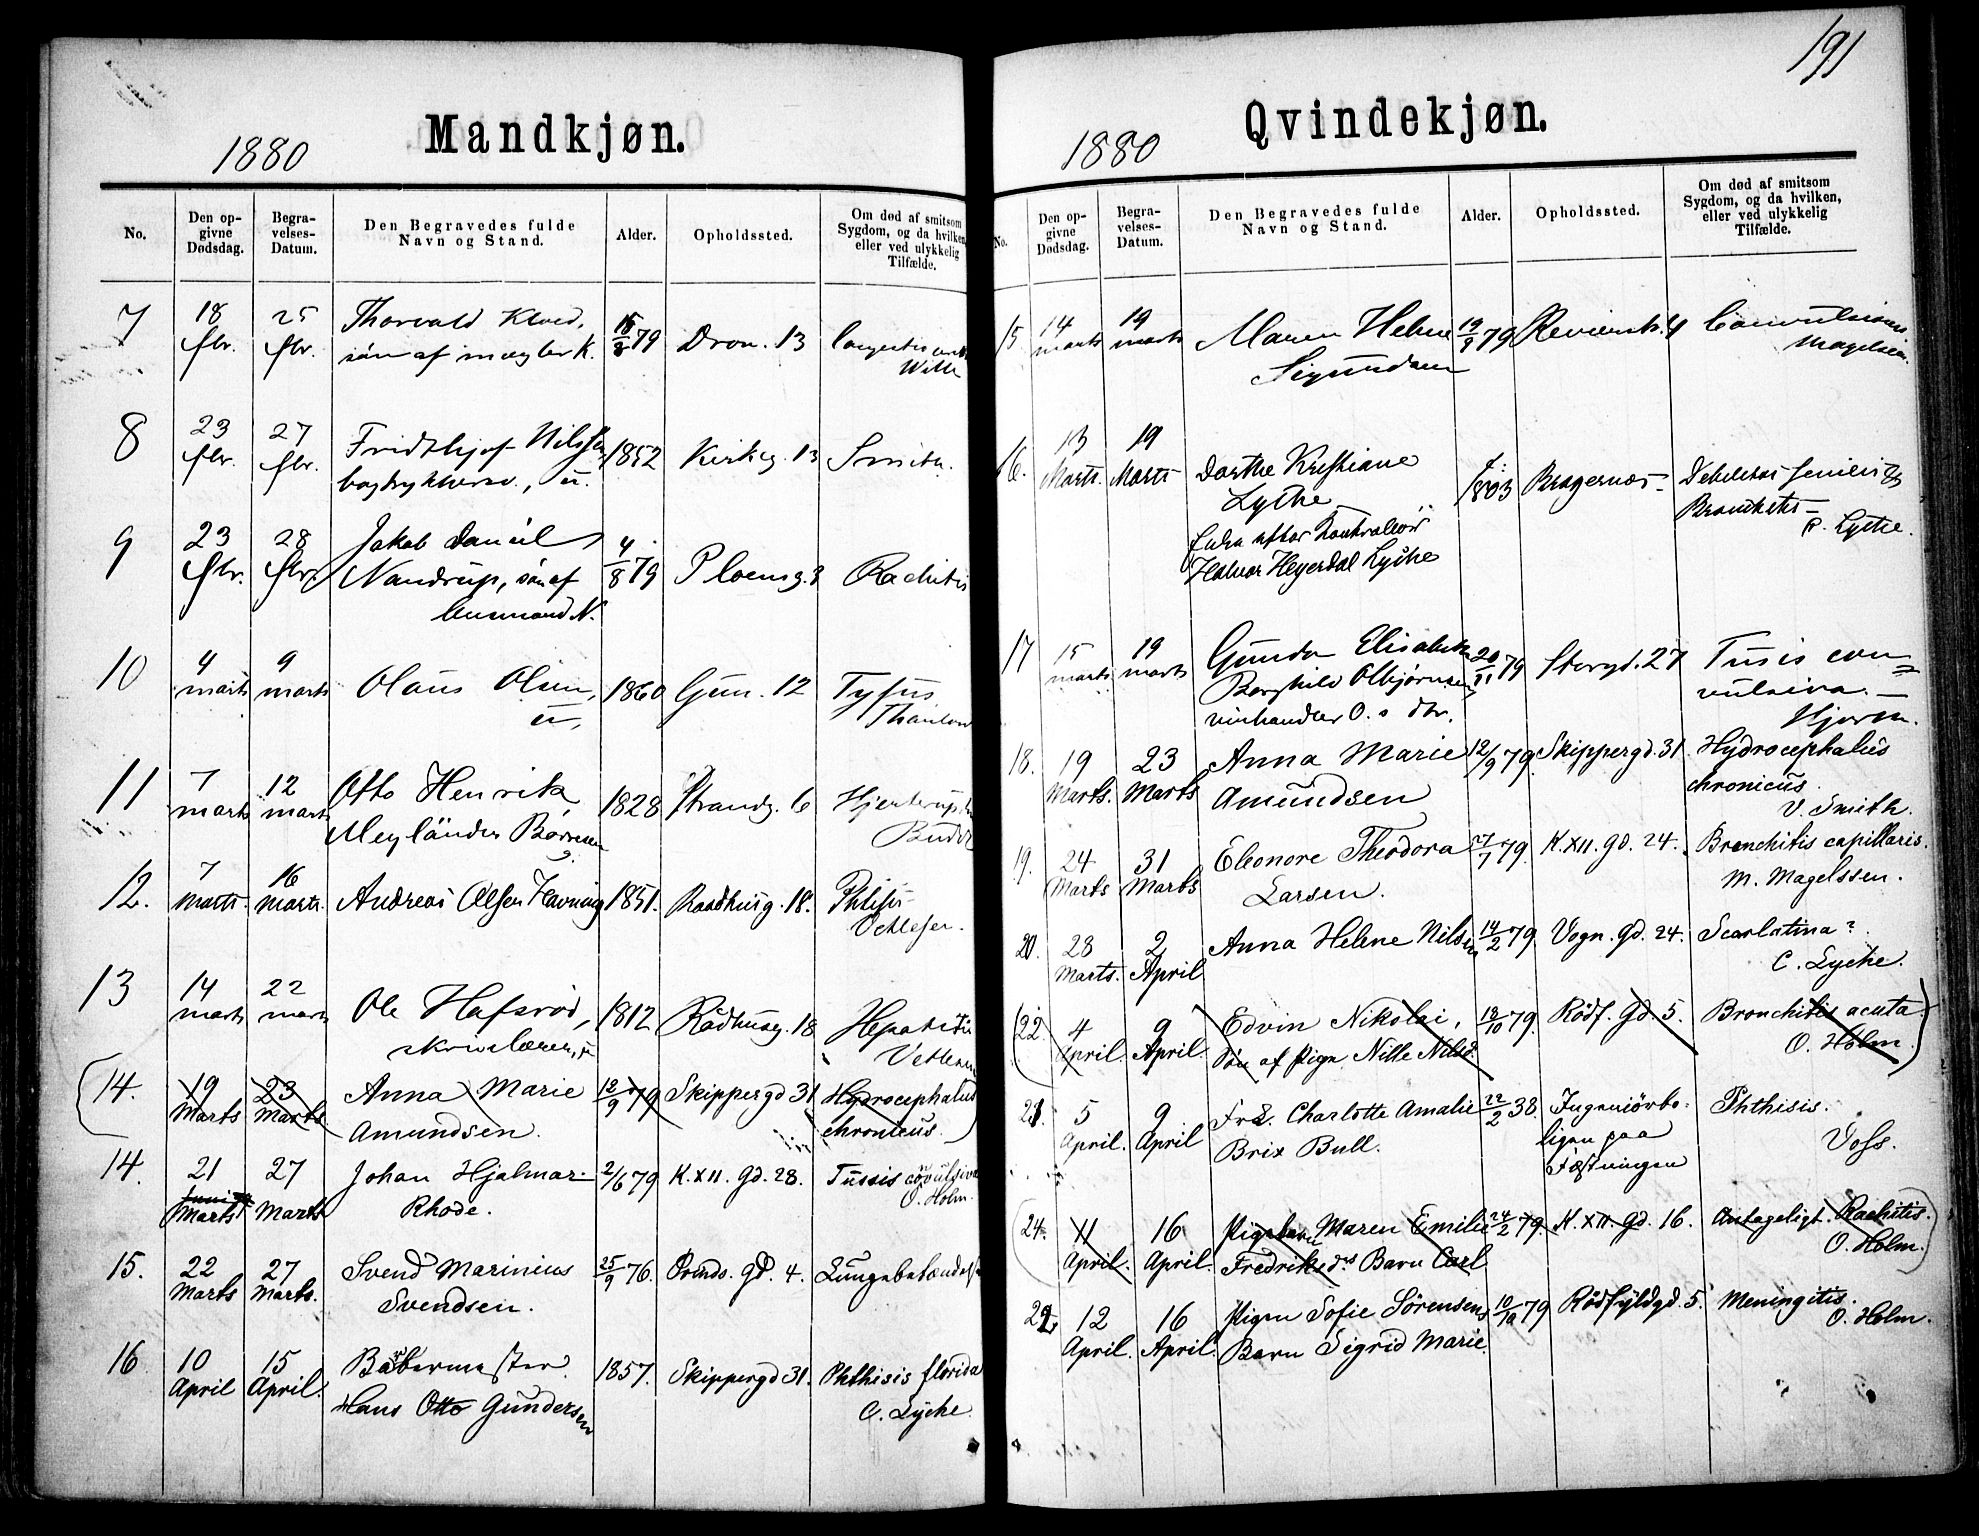 191
Mandkjøn.
1880
No.
Den op-
givne
Dødsdag.
Begra-
velses-
Datum.
Den Begravedes fulde
Navn og Stand.
Alder.
Opholdssted.
Om død af smitsom
Sygdom, og da hvilken,
eller ved ulykkelig
Tilfælde.
7 18 25 Thorvald 79 Dron. 13
fbr. fbr. søn af mægler K.
8 23 27 Fridthjof 1852 Kirkeg. 13 Smith.
fbr. fbr.
9 23 28 Jakob Daniel 4/8 79 Ploensg. 3 Rachitis
fbr. fbr. Nandrup, søn af
N.
10 4 9 Olaus Olsen, 1860 Grün. 12 Tyfus
marts marts
11 7 12 Otto Henrik 1828 Strandg. 6
marts marts Meyländer
12. 7 16 Andreas Olsen 1851. Raadhusg. 18. Phtisis
Marts. Marts. Vetlesen.
13 14 22 Ole Hafsrød, 1812 Rådhusg. 18
marts marts Vetlesen
(14. 19 23 Anna Marie 12/9 79 Skippergd 31 Hydrocephalus
Marts Marts. Amundsen. chronicus.)
14. 21 27 Johan Hjalmar 2/6 79 K. XII. gd. 28. Tussis
Marts Marts Rhode. O. Holm.
15. 22 27 Svend Marinius 25/9 76. Prinds. gd. 4.
Marts Marts. Svendsen.
16 10 15 1857. Skippergd 31. Phthisis florida
April April. Hans Otto Gundersen C. Lyche
Qvindekjøn.
1880
No.
Den op-
givne
Dødsdag.
Begra-
velses-
Datum.
Den Begravedes fulde
Navn og Stand.
Alder.
Opholdssted.
Om død af smitsom
Sygdom, og da hvilken,
eller ved ulykkelig
Tilfælde.
15 14 19 Maren Helene 19/9 79
marts marts Magelssen.
16. 13 19 Dorthe Kristiane 1803 Bragernæs
Marts. Marts Lyche
Enke efter Kontrollør C. Lyche.
Halvor Heyerdal Lyche
17 15 19 Gunda Elisabeth 20/11 79 Storgd. 27 Tusis con=
marts marts Borghild Olbjørnsen vulsiva.
vinhandler O.s dtr.
18. 19 23 Anna Marie 12/9 79. Skippergd. 31. Hydrocephalus
Marts. Marts Amundsen chronicus.
V. Smith.
19. 24 31 Eleonore Theodora 27/7 79. K. XII. gd. 24. Bronchitis capillaris.
Marts Marts Larsen. M. Magelssen.
20. 28 2 Anna Helene Nilsen 14/2 79. Vogn. gd. 24. Scarlatina?
Marts. April C. Lyche.
(22. 4 9 Edvin Nikolai, 12/10 79. Rödf. gd. 5. Bronchitis acuta.
April. April. Søn af Pigen Nille Nilsd. O. Holm.)
21 5 9 Charlotte Amalie 22/2 38. Ingeniörbo- Phthisis.
April. April Brix Bull. ligen paa Voss.
Fæstningen
(24. 11 16 Maren Emilie 24/2 79. K. XII. gd. 16. Antageligt Rachitis.
April. April. Fredriksd.s Barn Carl O. Holm.)
22 12 16 Pigen Sofie Sörensens 10/10 79 Rödfyldgd. 5. Meningitis.
April. April. Barn Sigrid Marie. O. Holm.